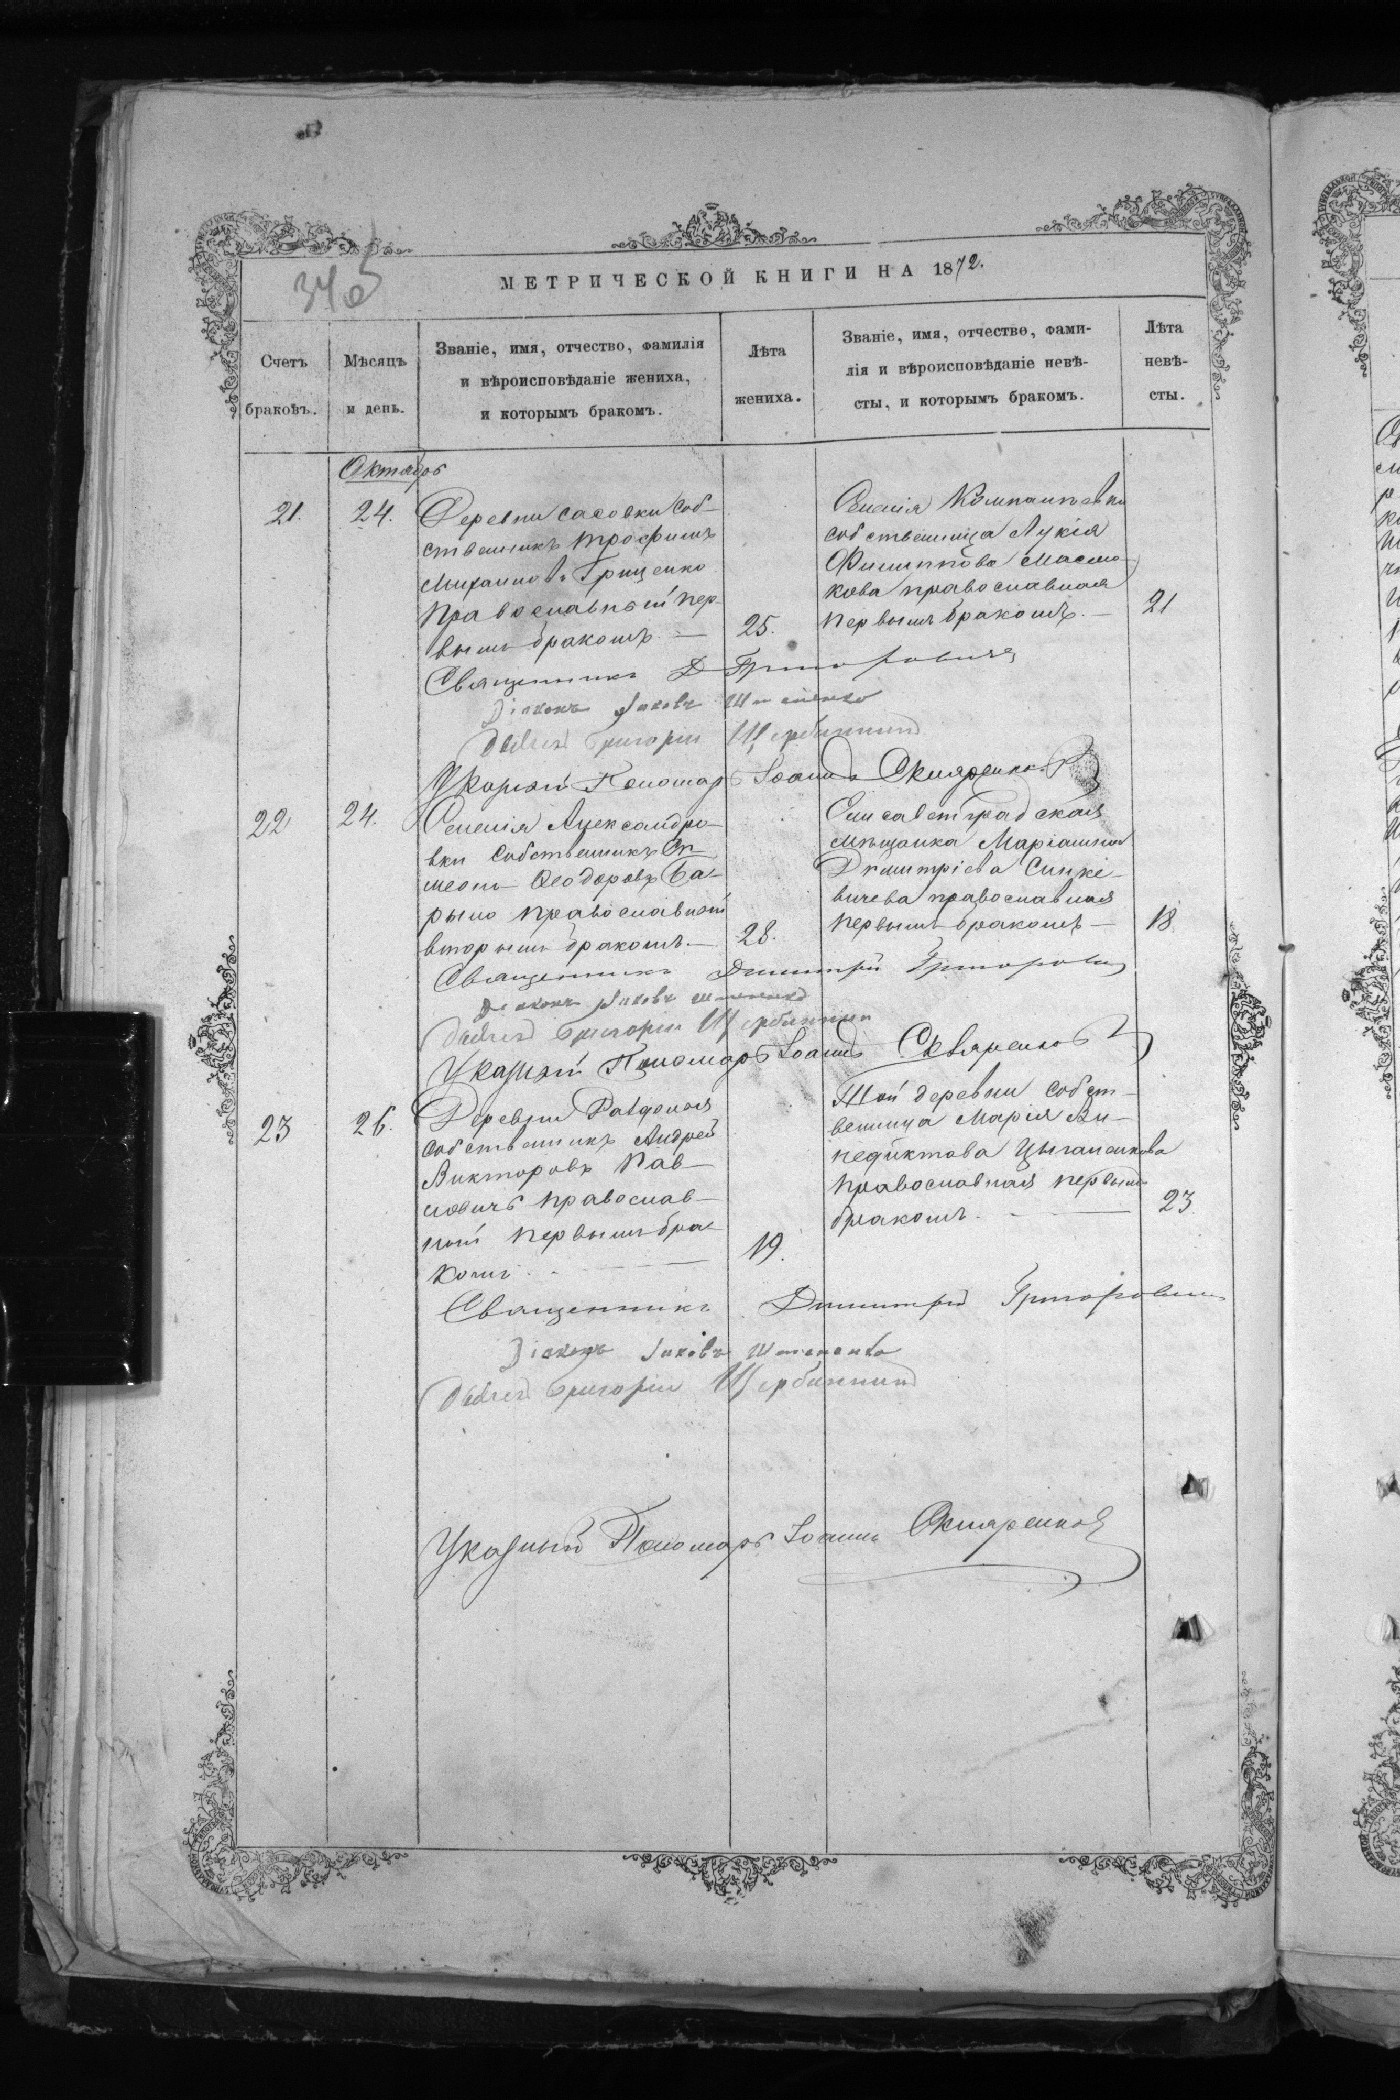 340
МЕТРИЧЕСКОЙ КНИГИ НА 1872.
Счетъ
браковъ.
Мѣсяцъ
и день.
Званіе, имя, отчество, фамилія
и вѣроисповѣданіе жениха,
и которымъ бракомъ.
Лѣта
жениха.
Званіе, имя, отчество, фами-
лія и вѣроисповѣданіе невѣ-
сты, и которымъ бракомъ.
Лѣта
невѣ-
сты.
Октябрь
21.
24.
Деревни Сасовки Соб-
ственникъ Трофимъ
Михаиловъ Грищенко
Православный пер-
вымъ бракомъ
25.
Селенія Компанѣевки
собственница Лукія
Филиппова
православная
первымъ бракомъ.
21
Священникъ Д Григоровичъ
Діаконъ Іаковъ
Григорій Щербинкинъ
Указный Пономарь Іоаннъ Скляренковъ
22
24.
Селенія Александро-
вки собственникъ
Ѳеодоровъ
православный
вторымъ бракомъ.
28.
Елисаветградская
мѣщанка Маріамна
Димитріева Синке-
вичева православная
первымъ бракомъ
18
Священникъ Димитрій Григоровичъ
Діаконъ Іаковъ
Григорій Щербинкинъ
Указный Пономарь Іоаннъ Скляренковъ
23
26.
Деревни
собственникъ Андрей
Викторовъ Пав-
ловичъ православ-
ный первымъ бра-
комъ
19.
Той деревни собст-
венница Марія Ви-
недиктова Цыганенкова
православная первымъ
бракомъ.
23.
Священникъ Димитрій Григоровичъ
Діаконъ Іаковъ
Григорій Щербинкинъ
Указный Пономарь Іоаннъ Скляренковъ